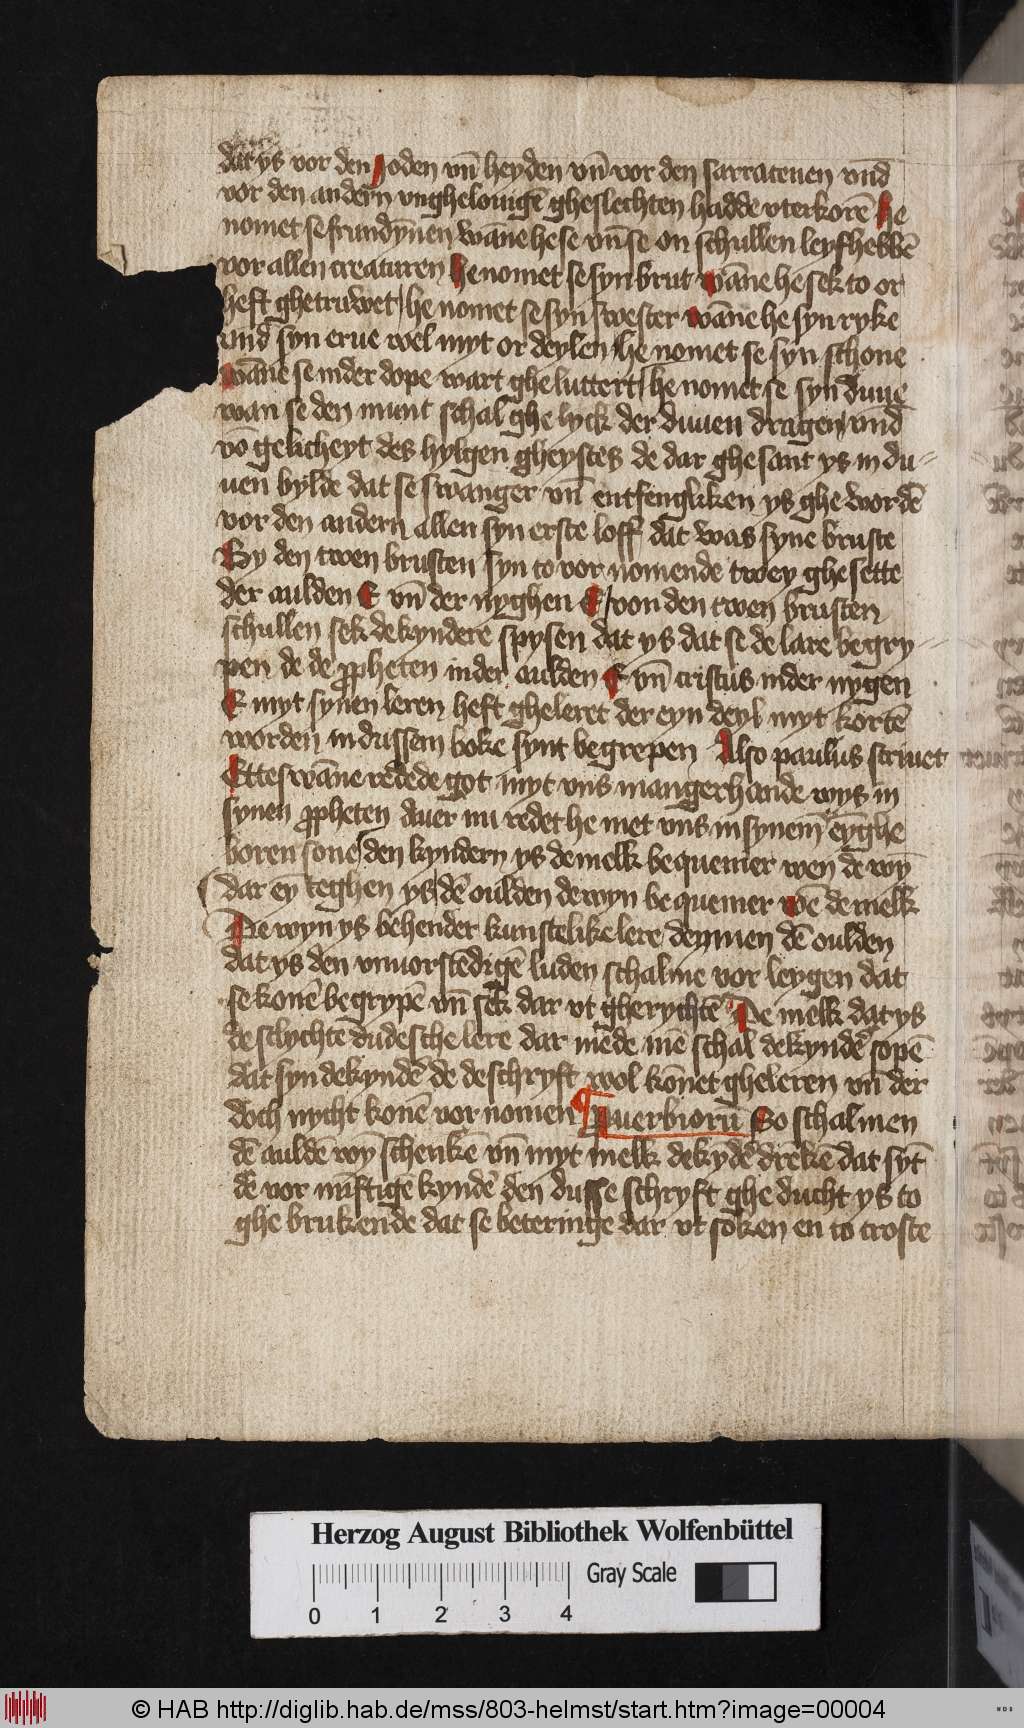 dat ys vor den Joden vn̄ heyden vn̄ vor den sarracenen vn̄d
vor den andern vnghelouigē gheslechten hadde vterkorē he
nomet se frundynnen wāne he se vn̄ se on schullen leyf hebbē
vor allen creaturen he nomet se syn brut wāne he sek to or
heft ghetruwet / he nomet se syn swester wāne he syn ryke
vnd syn erue wel myt or deylen / he nomet se syn schone
wāne se in der dope wart ghe luttert / he nomet se syn duue
wan se den munt schal ghe lyck der duuen dragen vn̄d
vō gelicheyt des hylgen gheystes de dar ghe sant ys in du
uen bylde dat se swanger vn̄ entfengliken ys ghe wordē
vor den andern allen syn erste loff dat was syne bruste
By den twen brusten syn to vor nomende twey ghe sette
der aulden E vn̄ der nyghen E / von den twen brusten
schullen sek de kyndere spysen dat ys dat se de lare begry
pen de de ꝓpheten in der aulden E vn̄ cristus in der nygen
E myt synen leren heft gheleret der eyn deyl myt kortē
worden in dussem boke synt begrepen Also paulus scriuet
Ettes wāne redede got myt vns mangerhande wys in
synen ꝓpheten auer nu redet he met vns in synem eyn̄ghe
boren sone / den kyndern ys de melk bequemer wen de wȳ
dar eȳ teghen ys / dē oulden de wyn be quemer wē de melk
De wyn ys behender kunstelike lere de mmen dē oulden
dat ys den vnuorstēdigē luden schal me vor leygen dat
se konē begrypē vn̄ sek dar vt gherychtē De melk dat ys
de slychte dudesche lere dar mēde mē schal de kyndē sopē
dat syn de kyndē de de schryft wol kōnet gheleren vn̄ der
doch nycht konē vor nomen ꝓuerbiorū So schal men
dē auldē wȳ schenkē vn̄ myt melk de kȳdē drēkē dat sȳt
dē vor nūftige kyndē den dusse schryft ghe ducht ys to
ghe brukende dat se beteringe dar vt soken en to troste
Herzog August Bibliothek Wolfenbüttel
Gray Scale
0 1 2 3 4
© HAB http://diglib.hab.de/mss/803-helmst/start.htm?image=00004